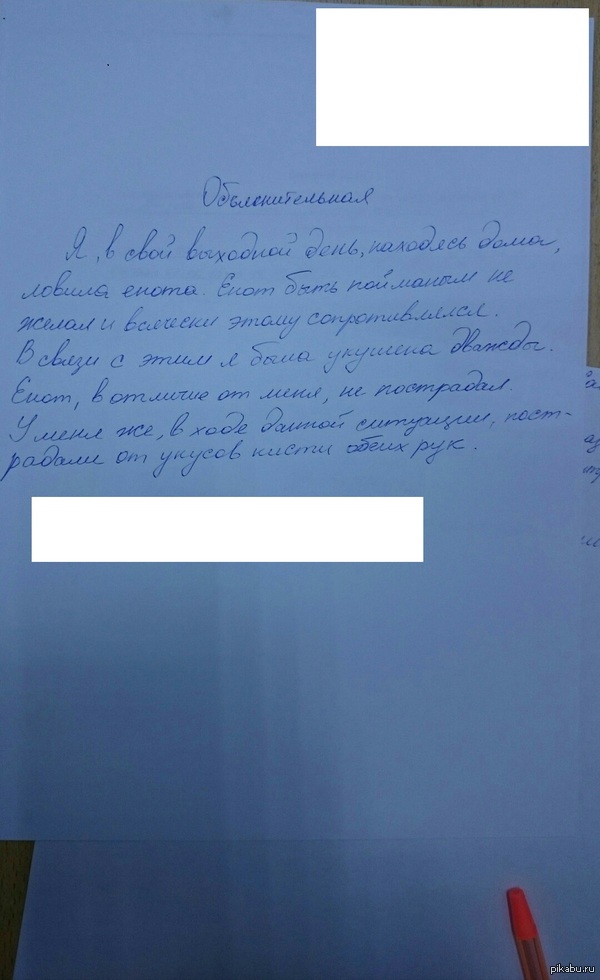 Объяснительная
Я, в свой выходной день, находясь дома,
ловила енота. Енот быть пойманым не
желал и всячески этому сопротивлялся.
В связи с этим я была укушена дважды.
Енот, в отличие от меня, не пострадал.
У меня же, в ходе данной ситуации, пост-
радали от укусов кисти обеих рук.
pikabu.ru